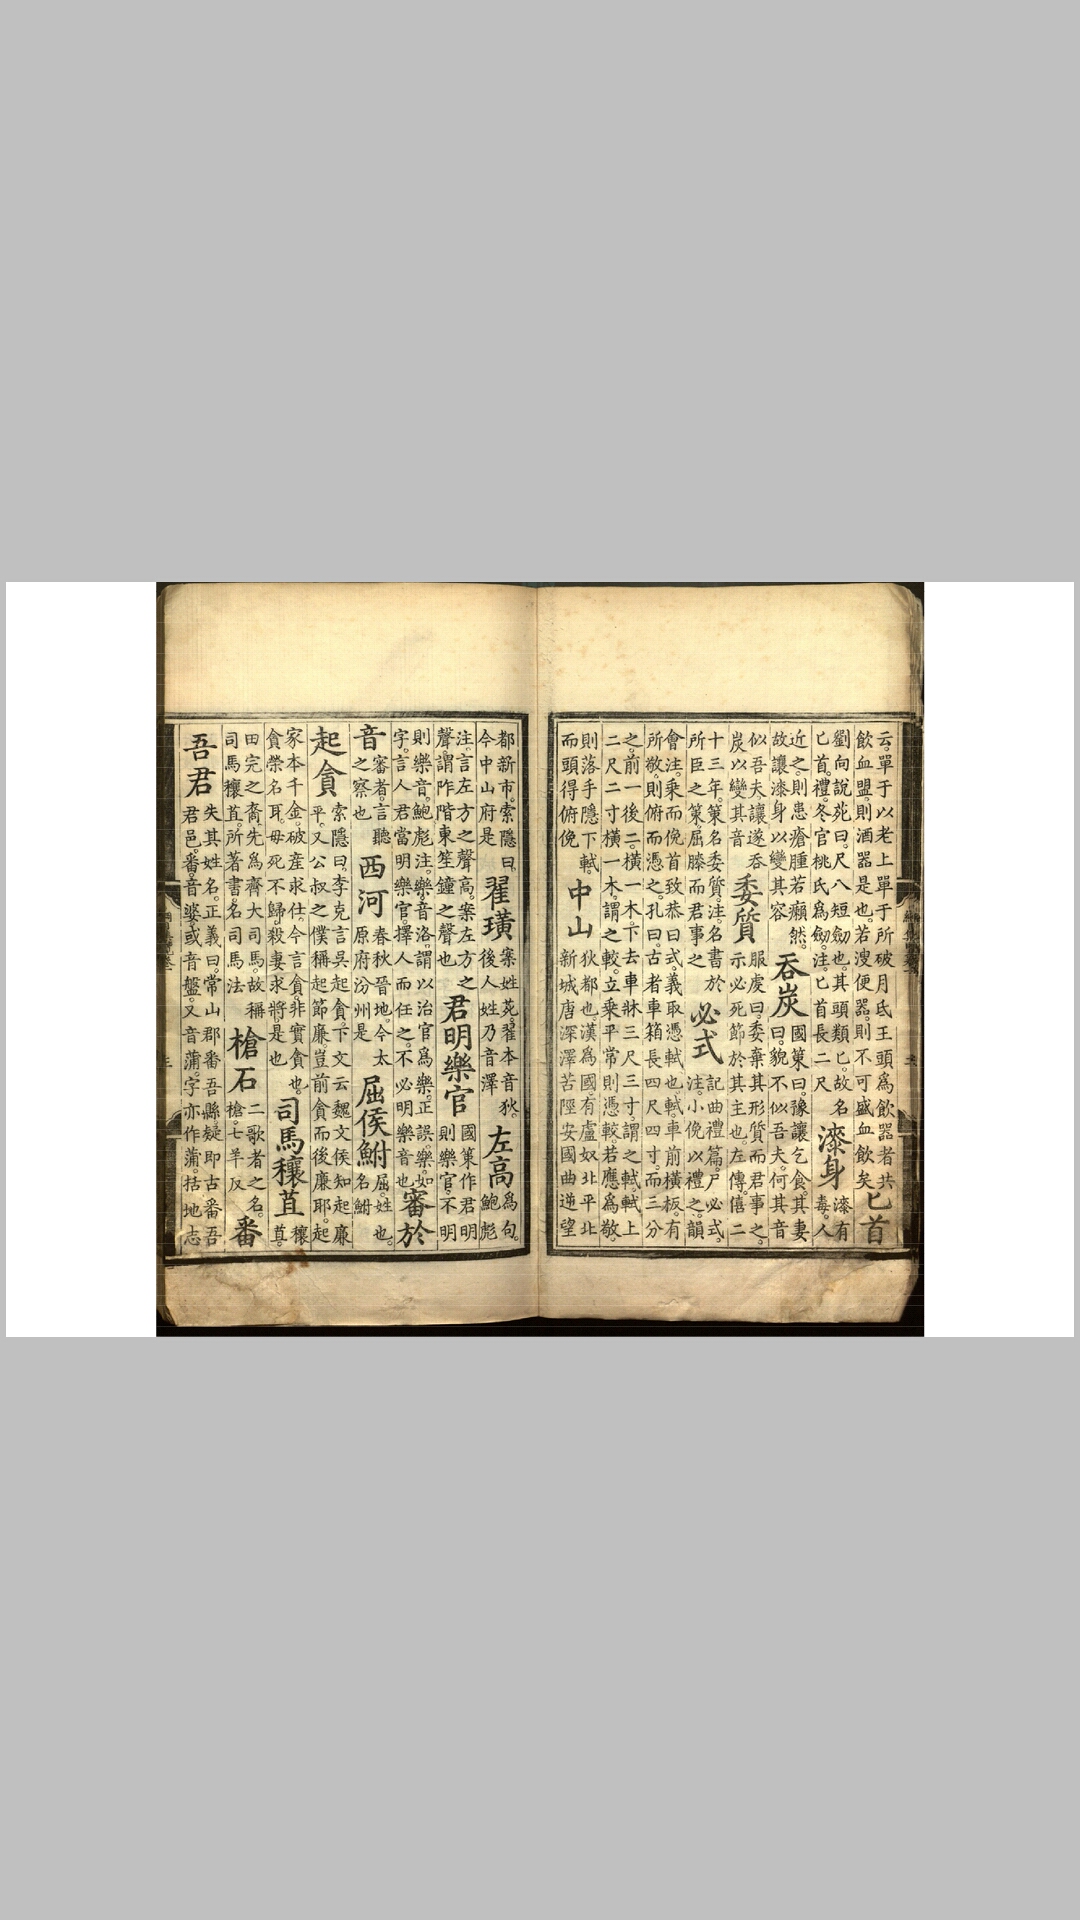 云單于以老上單于所破月氏王頭爲飮器者共
飮血盟則酒器是也若溲便器則不可盛血飮矣匕首
劉向說苑曰尺八短劒也其頭類匕故名
匕首禮冬官桃氏爲劒注匕首長二尺漆身漆有毒人
近之則患瘡腫若癩然
故讓漆身以變其容吞炭國策曰豫讓乞食其妻曰貌不似吾夫何其音
似吾夫讓遂吞
炭以變其音委質服虔曰委棄其形質而君事之示必死節於其主也左傳僖二
十三年策名委質注名書於
所臣之策屈膝而君事之必式記曲禮篇尸必式注小俛以禮之韻
會注乘而俛首致恭曰式義取憑軾也軾車前橫板有
所敬則俯而憑之孔曰古者車箱長四尺四寸而三分
之前一後二橫一木下去車牀三尺三寸謂之軾軾上
二尺二寸橫一木謂之較立乘平常則憑較若應爲敬
則落手隱下軾
而頭得俯俛中山狄都也漢爲國有盧奴北平北新城唐深澤苦陘安國曲逆望
都新市索隱曰
今中山府是翟璜案姓苑翟本音狄後人姓乃音澤左高爲句鮑彪
注言左方之聲高案左方之
聲謂阼階東笙鐘之聲也君明樂官國策作君明則樂官不明
則樂音鮑彪注樂音洛謂以治官爲樂正誤樂如
字言人君當明樂官擇人而任之不必明樂音也審於
音審者言聽之察也西河春秋晉地今太原府汾州是屈侯鮒屈姓也名鮒
起貪索隱曰李克言吳起貪下文云魏文侯知起廉平又公叔之僕稱起節廉豈前貪而後廉耶起
家本千金破產求仕今言貪非實貪也
貪榮名耳毋死不歸殺妻求將是也司馬穰苴穰苴
田完之裔先爲齊大司馬故稱
司馬穰苴所著書名司馬法槍石二歌者之名槍七羊反番
吾君失其姓名正義曰常山郡番吾縣疑卽古番吾君邑番音婆或音盤又音蒲字亦作蒲括地志